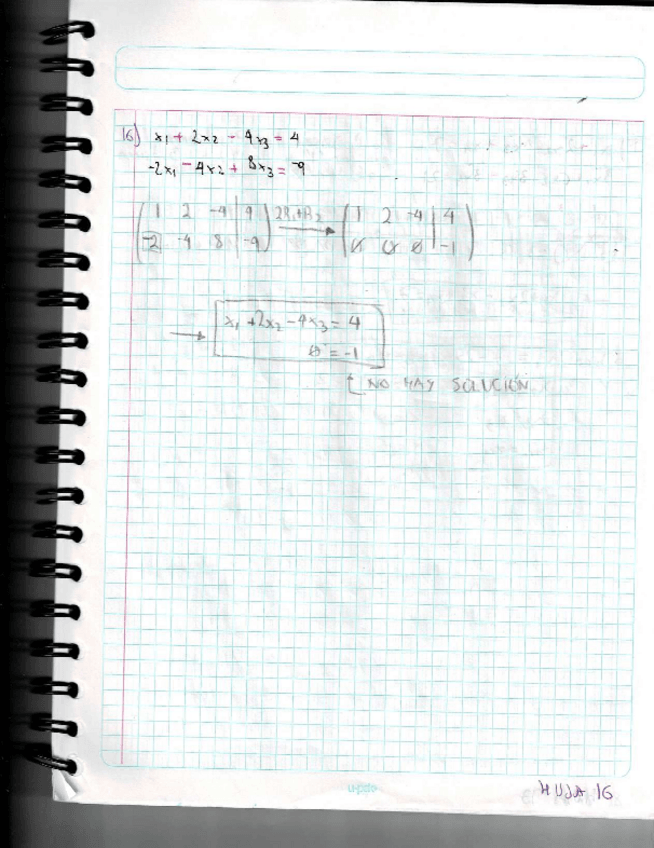 16) x₁ + 2x₂ - 4x₃ = 4
-2x₁ - 4x₂ + 8x₃ = -9
( 1 2 -4 | 4 ) 2R₁+R₂ → ( 1 2 -4 | 4 )
( -2 -4 8 | -9 ) ( 0 0 0 | -1 )
→ x₁ + 2x₂ - 4x₃ = 4
0 = -1
NO HAY SOLUCIÓN
HOJA 16